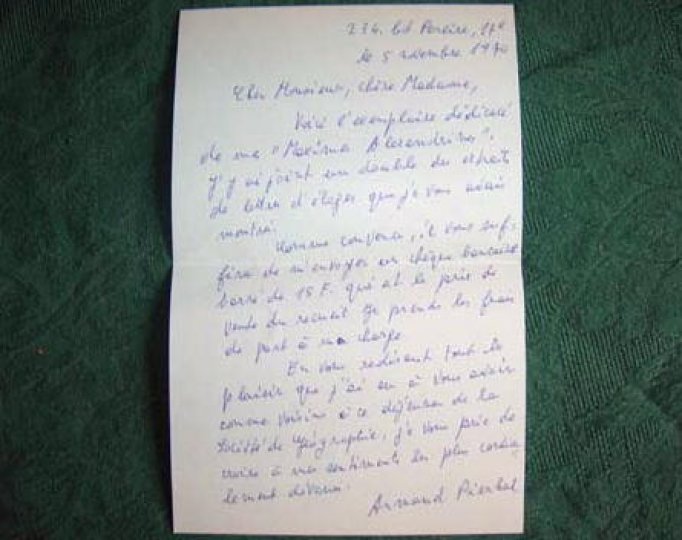 234. Bd Pereire, 17e
le 5 novembre 1970
Cher Monsieur, chère Madame,
Voici l'exemplaire dédicacé
de ma "Maxima Alexandrina".
J'y ai joint un double des extraits
de lettres d'éloges que je vous avais
montré.
Comme convenu, il vous suf-
fira de m'envoyer un chèque bancaire
barré de 15 F. qui est le prix de
vente du recueil. Je prends les frais
de port à ma charge.
En vous redisant tout le
plaisir que j'ai eu à vous avoir
comme voisins à ce déjeuner de la
Société de Géographie, je vous prie de
croire à mes sentiments les plus cordia-
lement dévoués.
Armand